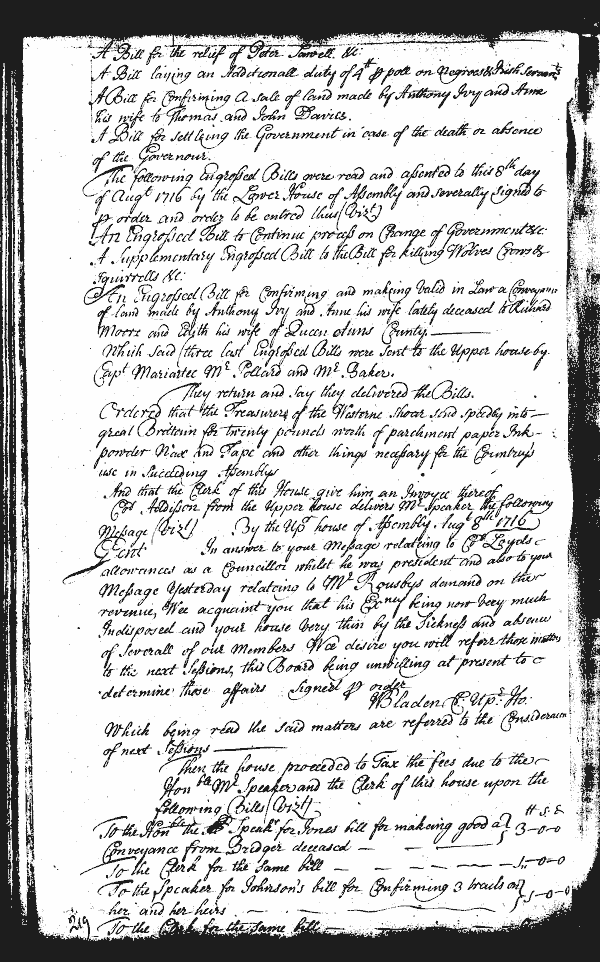 A Bill for the relief of Peter Sewell &c:
A Bill laying an Additionall duty of 4th p poll on Negroes & Irish Servants
A Bill for Confirming a sale of land made by Anthony Ivy and Anne
his wife to Thomas and John Davies.
A Bill for settleing the Government in case of the death or absence
of the Governour.
The following Engrossed Bills were read and assented to this 8th day
of Augt 1716 by the Lower House of Assembly and severally signed to
p order and order to be entred thus (Vizt)
An Engrossed Bill to Continue process on Change of Government &c:
A Supplementary Engrossed Bill to the Bill for killing Wolves Crows &
Squirrells &c:
An Engrossed Bill for Confirming and making Valid in Law a Conveyance
of land made by Anthony Ivy and Anne his wife lately deceased to Richard
Moore and Edith his wife of Queen Anns County
Which said three last Engrossed Bills were Sent to the Upper house by
Capt Mariartee Mr Pollard and Mr Baker.
They return and say they delivered the Bills.
Ordered that the Treasurer of the Westerne Shoar send speedy into
great Brittain for twenty pounds worth of parchment paper Ink-
powder Wax and Tape and other things necessary for the Countrys
use in Succeding Assemblys
And that the Clerk of this House give him an Invoyce thereof
Col Addison from the Upper house delivers Mr Speaker the following
Message (Vizt) By the Upr house of Assembly. Augt 8th 1716
Gent In answer to your Message relateing to Col Loyds
allowances as a Councillor whilst he was president and also to your
Message Yesterday relateing to Mr Rousbys demand on the
revenue, Wee acquaint you that his Excncy being now Very much
Indisposed and your house Very thin by the Sickness and absence
of Severall of our Members Wee desire you will referr those matters
to the next Sessions, this Board being unwilling at present to
determine those affairs Signed p order
WBladen Cl. Upr. Ho:
Which being read the said matters are referred to the Consideracon
of next Sessions
Then the house proceeded to Tax the fees due to the
Honble Mr Speaker and the Clerk of this house upon the
following Bills (Vizt)
To the Honble the Speakr for Jones bill for makeing good a 3-0-0
Conveyance from Bridger deceased
To the Clerk for the Same bill 1-0-0
To the Speaker for Johnson's bill for Confirming 3 tracts on 5-0-0
her and her heirs
To the Clerk for the same bill
219